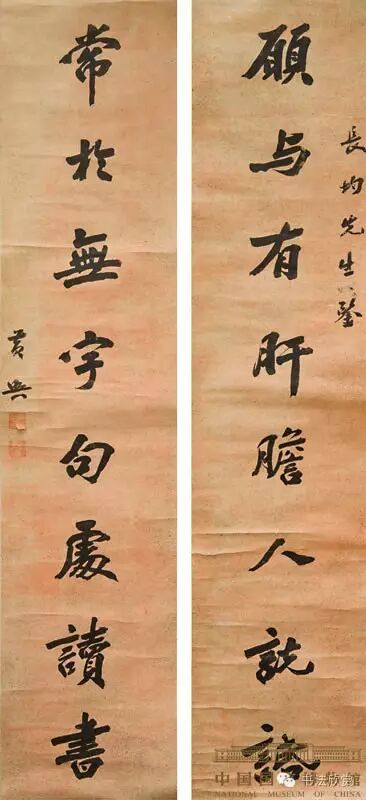 長均先生鑒
願与有肝膽人
常於無字句處讀書
黃興
中国国館
NATIONAL MUSEUM OF CHINA
书法欣赏